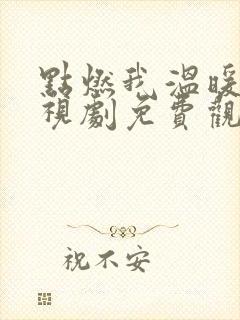 點燃我溫暖
視劇免費觀
祝不安